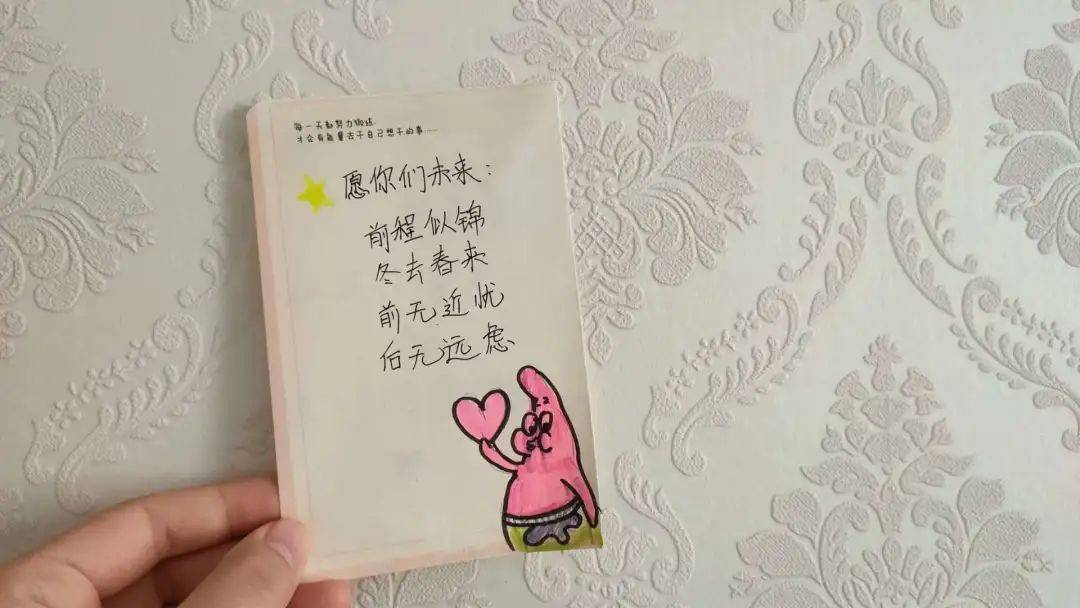 每一天都努力锻练
才会有能量去干自己想干的事……
愿你们未来:
前程似锦
冬去春来
前无近忧
后无远虑